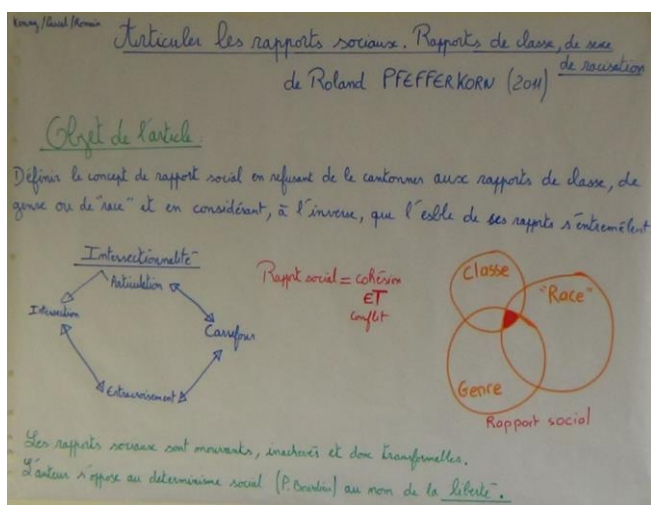 Kenny/Pascal/Romain
Articuler les rapports sociaux. Rapports de classe, de sexe
de racisation
de Roland PFEFFERKORN (2011)
Objet de l'article :
Définir le concept de rapport social en refusant de le cantonner aux rapports de classe, de
genre ou de "race" et en considérant, à l'inverse, que l'esble de ses rapports s'entremêlent
Intersectionnalité
Articulation
Intersection
Carrefour
Entrecroisement
Rapport social = cohésion
ET
conflit
Classe
"Race"
Genre
Rapport social
Les rapports sociaux sont mouvants, inachevés et donc transformables.
L'auteur s'oppose au determinisme social (P. Bourdieu) au nom de la liberté.